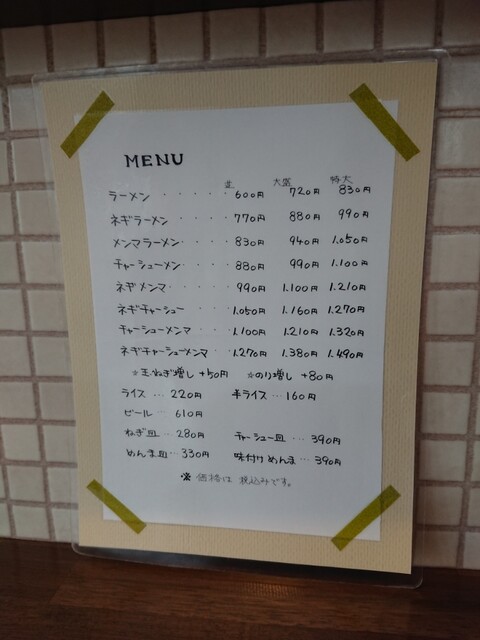 MENU
並 大盛 特大
ラーメン ・・・・・ 600円 720円 830円
ネギラーメン ・・・・ 770円 880円 990円
メンマラーメン ・・・ 830円 940円 1.050円
チャーシューメン ・・・ 880円 990円 1.100円
ネギメンマ ・・・・ 990円 1.100円 1.210円
ネギチャーシュー ・・・ 1.050円 1.160円 1.270円
チャーシューメンマ ・・・ 1.100円 1.210円 1.320円
ネギチャーシューメンマ ・・ 1.270円 1.380円 1.490円
☆玉ねぎ増し +50円 ☆のり増し +80円
ライス … 220円 半ライス … 160円
ビール … 610円
ねぎ皿 … 280円 チャーシュー皿 … 390円
めんま皿 … 330円 味付けめんま … 390円
※ 価格は 税込みです。